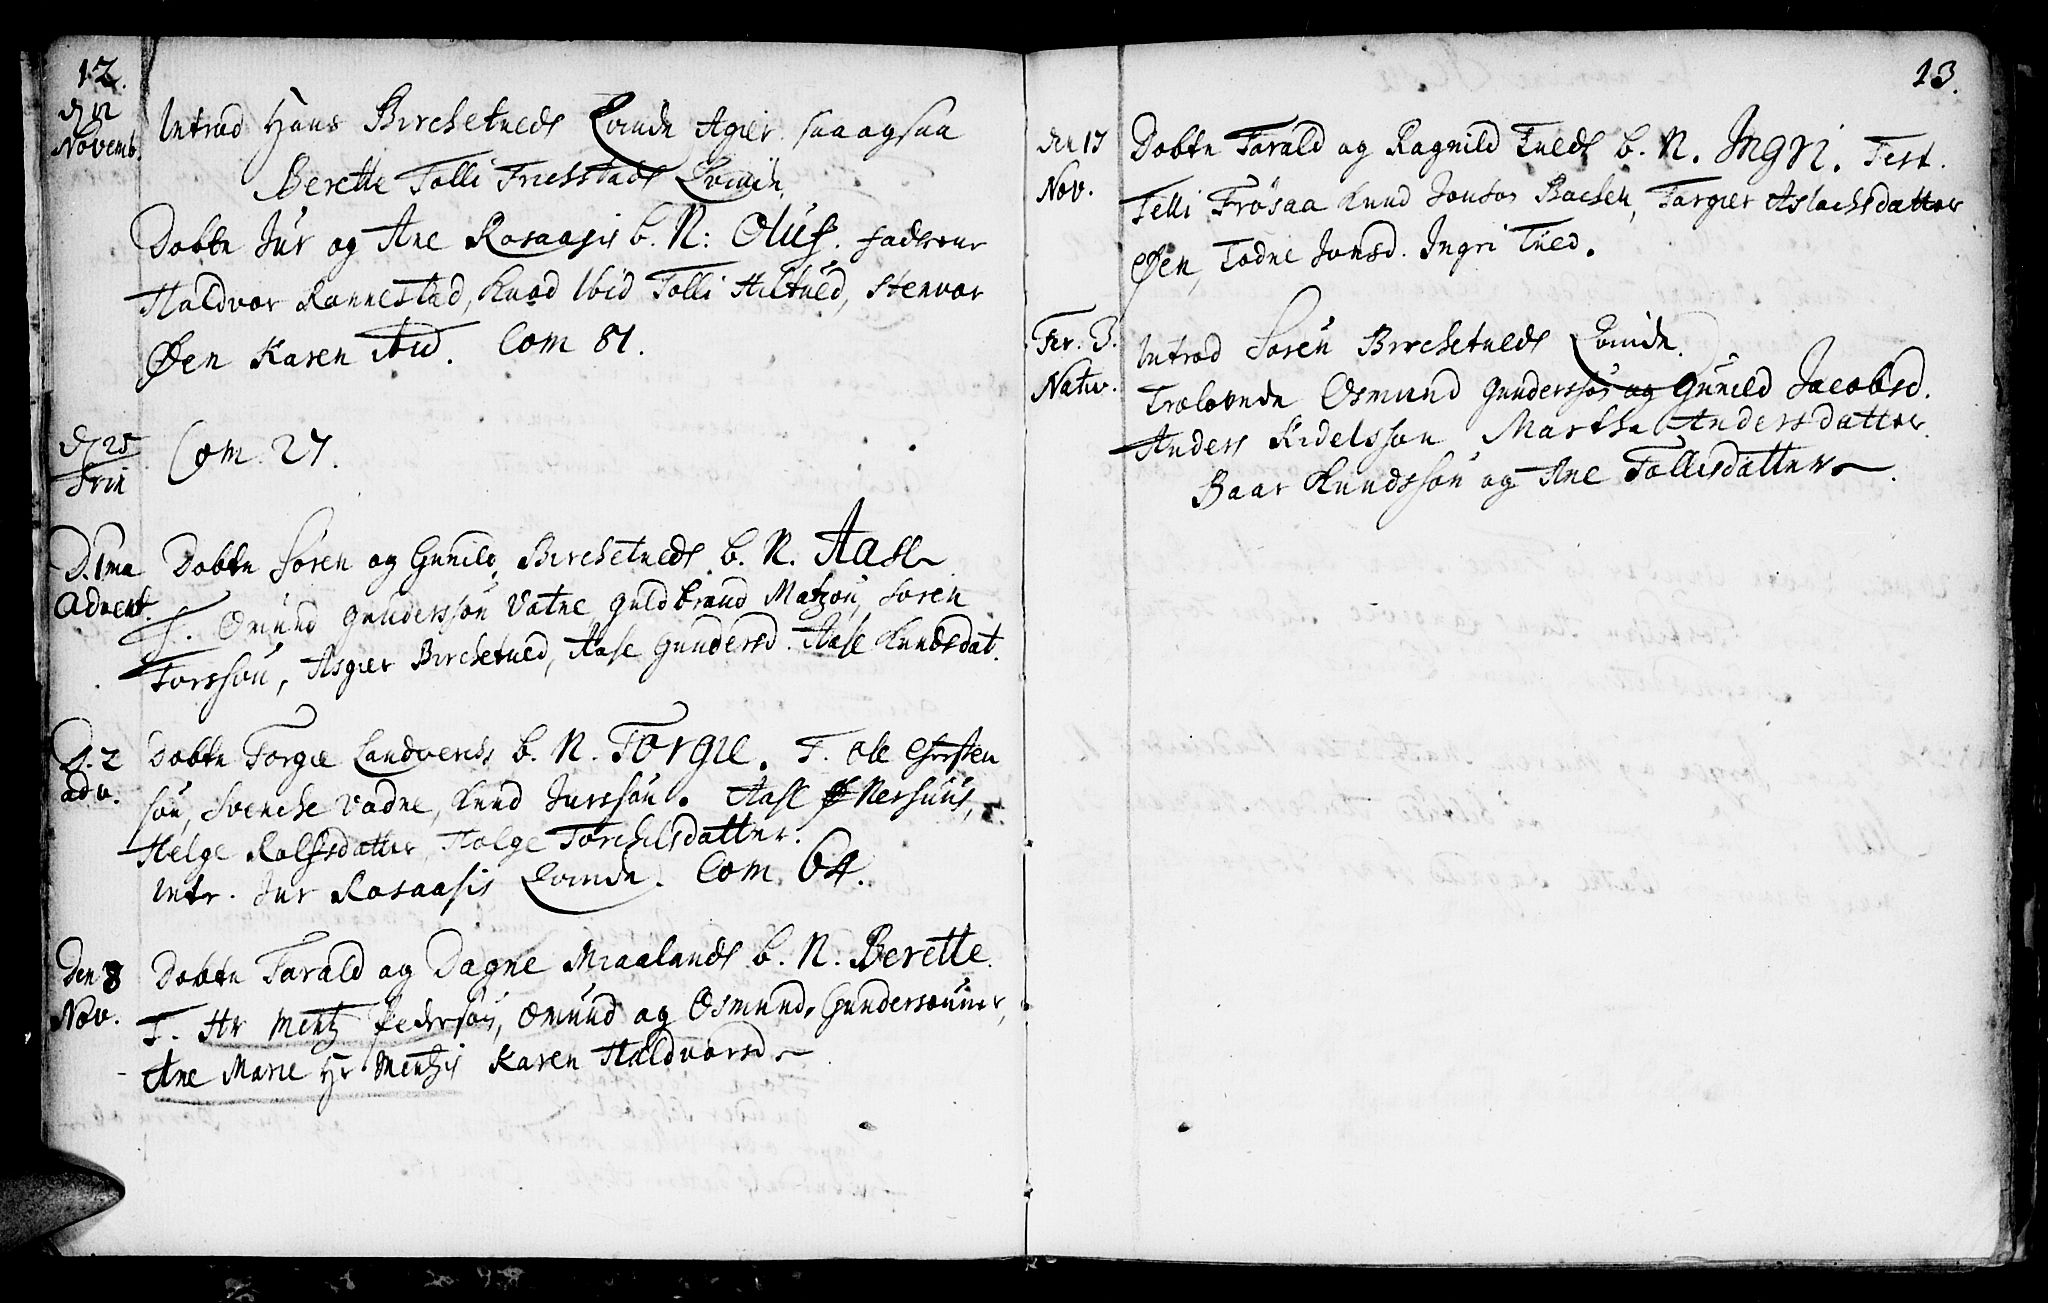 12.
d 12
Novemb.
Introd Hans Birchetveds Qvinde Agier saaogsaa
Berette Tolli Friesstads Qvinde.
Døbte Jur og Ane Rosaasis b. N: Oluf. Faddrene
Haldvor Rannestad, Knud Ibid Tolli Hiltved, Stenvor
Øen Karen Ibid. Com 81.
d 25
Trin
Com. 27.
D. 1ma
Advent.
Døbte Søren og Gunild Birchetveds b. N. Aase
T. Omund Gunderssøn Vatne Guldbrand Matzøn, Søren
Torssøn, Asgier Birchetved, Aase Gundersd. Aase Knudsdat.
D. 2
adv.
Døbte Torgie Landvercks b. N. Torgie. T. Ole Chrsten
søn, Svenche Vadne, Knud Jurssøn. Aase Nershuus,
Helge Rolfsdatter, Holge Torchilsdatter.
Intr. Jur Rosaasis Qvinde. Com 64.
Den 8
Nov.
Døbte Tarald og Dagne Miaalands b. N. Berette.
T. Hr Mentz Pedersøn, Omund og Osmund Gundersønner,
Ane Marie Hr Mentzis Karen Haldvorsd
13.
den 17
Nov.
Døbte Tarald og Ragnild Tveds b. N. Ingri. Test.
Telli Frøsaa Knud Jonsøn Bachen, Torgier Aslachsdatter
Øen, Todne Jonsd. Ingri Tved.
Fer. 3.
Nativ.
Introd Søren Birchetveds Qvinde.
Trolovede Osmund Gunderssøn og Gunild Jacobsd.
Anders Kidelssøn Martha Andersdatter.
Baar Knudssøn og Ane Tollisdatter